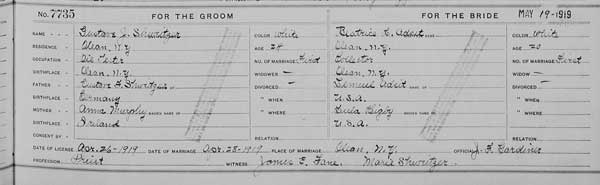 No. 7735 FOR THE GROOM FOR THE BRIDE MAY 19-1919
NAME Gustave J. Shwitzer COLOR White Beatrice E. COLOR White
RESIDENCE Olean, N.Y. AGE 24 Olean, N.Y. AGE 20
OCCUPATION NO. OF MARRIAGE First NO. OF MARRIAGE First
BIRTHPLACE Olean, N.Y. WIDOWER — Olean, N.Y. WIDOW —
FATHER Gustave DIVORCED — Lemuel DIVORCED —
BIRTHPLACE Germany " WHEN U.S.A. " WHEN
MOTHER Anna Murphy MAIDEN NAME OF " WHERE Lula Bigby MAIDEN NAME OF " WHERE
BIRTHPLACE Ireland U.S.A.
CONSENT BY RELATION RELATION
DATE OF LICENSE Apr. 26-1919 DATE OF MARRIAGE Apr. 28-1919 PLACE OF MARRIAGE Olean, N.Y. OFFICIAL J. F. Gardiner
PROFESSION Priest WITNESS James E. Fane, Marie Shwitzer